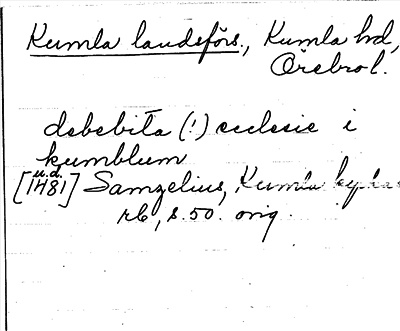 Kumla landsförs., Kumla hd,
Örebro l.
debebita (!) ecclesie i
kumblum
u.d.
[1481] Samzelius, Kumla kyrkas
rb, s. 50. orig.